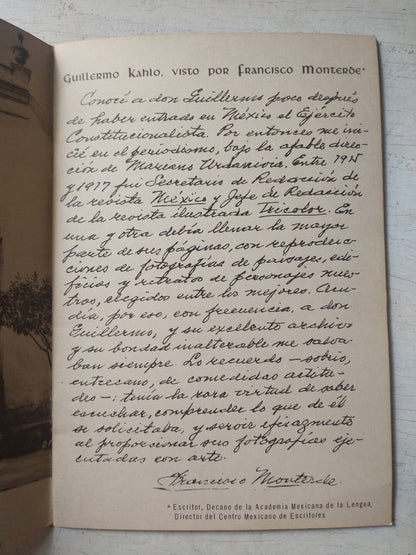 Guillermo Kahlo, visto por Francisco Monterde*
Conocí a don Guillermo poco después
de haber entrado en México el Ejército
Constitucionalista. Por entonces me ini-
cié en el periodismo, bajo la afable direc-
ción de Mariano Urdanivia. Entre 1915
y 1917 fui Secretario de Redacción de
la revista México y Jefe de Redacción
de la revista ilustrada Tricolor. En
una y otra debía llenar la mayor
parte de sus páginas, con reproduc-
ciones de fotografías de paisajes, edi-
ficios y retratos de personajes nues-
tros, elegidos entre los mejores. Acu-
día, por eso, con frecuencia, a don
Guillermo, y su excelente archivo
y su bondad inalterable me salva-
ban siempre. Lo recuerdo —sobrio,
entrecano, de comedidas actitu-
des—: tenía la rara virtud de saber
escuchar, comprender lo que de él
se solicitaba, y servir eficazmente
al proporcionar sus fotografías eje-
cutadas con arte.
Francisco Monterde.
* Escritor, Decano de la Academia Mexicana de la Lengua,
Director del Centro Mexicano de Escritores.